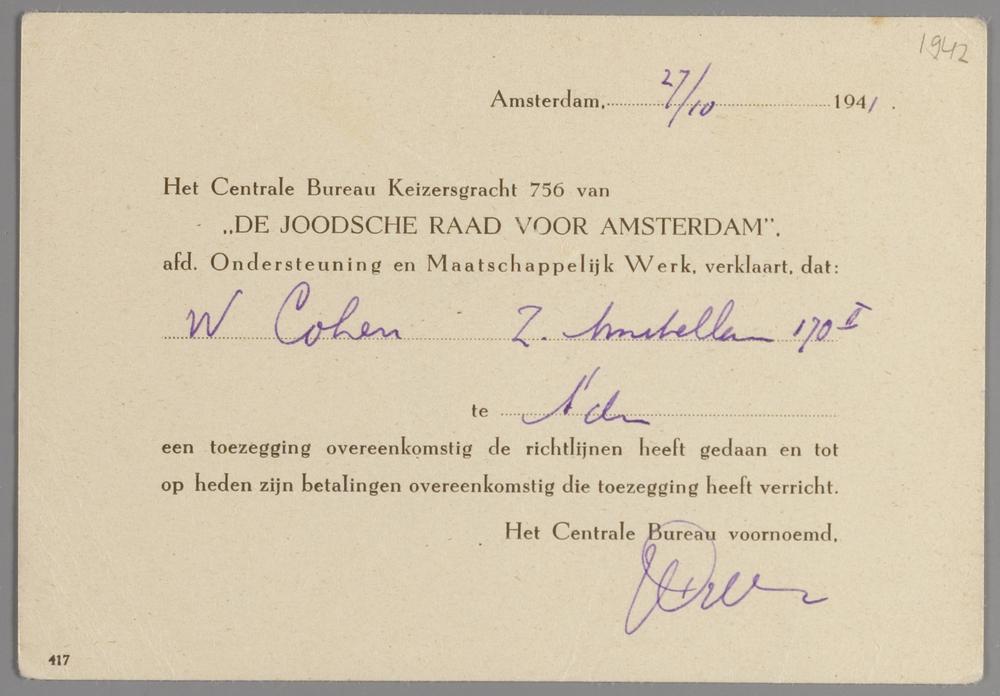 1942
Amsterdam, 27/10 1941.
Het Centrale Bureau Keizersgracht 756 van
„DE JOODSCHE RAAD VOOR AMSTERDAM”,
afd. Ondersteuning en Maatschappelijk Werk, verklaart, dat:
W Cohen Z. Amstellaan 170 II
te A'dm
een toezegging overeenkomstig de richtlijnen heeft gedaan en tot
op heden zijn betalingen overeenkomstig die toezegging heeft verricht.
Het Centrale Bureau voornoemd,
417